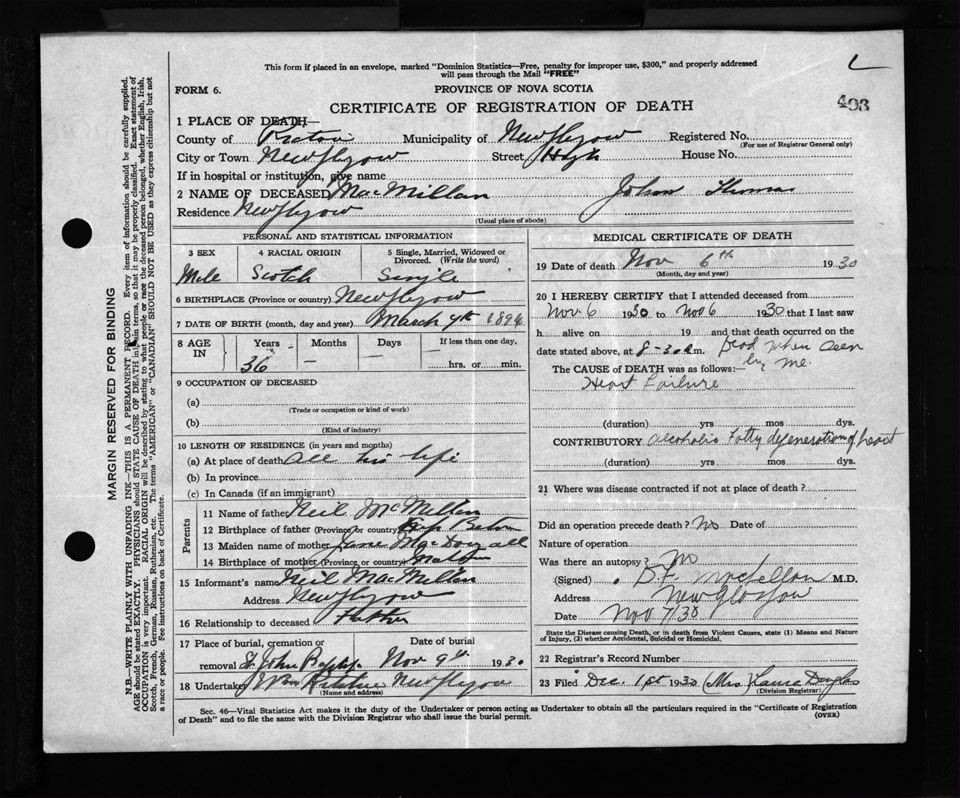 L
This form if placed in an envelope, marked "Dominion Statistics—Free, penalty for improper use, $300," and properly addressed
will pass through the Mail "FREE"
FORM 6.
PROVINCE OF NOVA SCOTIA
CERTIFICATE OF REGISTRATION OF DEATH
403
1 PLACE OF DEATH—
County of Pictou Municipality of New Glasgow Registered No.
(For use of Registrar General only)
City or Town New Glasgow Street High House No.
If in hospital or institution, give name
2 NAME OF DECEASED MacMillan John Thomas
Residence New Glasgow
(Usual place of abode)
PERSONAL AND STATISTICAL INFORMATION
3 SEX 4 RACIAL ORIGIN 5 Single, Married, Widowed or
Divorced. (Write the word)
Male Scotch Single
6 BIRTHPLACE (Province or country) New Glasgow
7 DATE OF BIRTH (month, day and year) March 9th 1894
8 AGE IN Years Months Days If less than one day,
36 — — hrs. or min.
9 OCCUPATION OF DECEASED
(a)
(Trade or occupation or kind of work)
(b)
(Kind of industry)
10 LENGTH OF RESIDENCE (in years and months)
(a) At place of death all his life
(b) In province
(c) In Canada (if an immigrant)
Parents
11 Name of father Neil McMillan
12 Birthplace of father (Province or country) Cape Breton
13 Maiden name of mother Jane MacDougall
14 Birthplace of mother (Province or country)
15 Informant's name Neil MacMillan
Address New Glasgow
16 Relationship to deceased Father
17 Place of burial, cremation or Date of burial
removal St John Baptist Nov 9th 1930
18 Undertaker New Glasgow
(Name and address)
MEDICAL CERTIFICATE OF DEATH
19 Date of death Nov 6th 1930
(Month, day and year)
20 I HEREBY CERTIFY that I attended deceased from
Nov 6 1930 to Nov 6 1930 that I last saw
h alive on 19 and that death occurred on the
date stated above, at 8-30 a.m. Dead when seen
by me.
The CAUSE of DEATH was as follows:—
Heart Failure
(duration) yrs mos dys.
CONTRIBUTORY alcoholic Fatty degeneration of heart
(duration) yrs mos dys.
21 Where was disease contracted if not at place of death?
Did an operation precede death? No Date of
Nature of operation
Was there an autopsy? No
(Signed) M.D.
Address New Glasgow
Date Nov 7/30
State the Disease causing Death, or in death from Violent Causes, state (1) Means and Nature
of Injury, (2) whether Accidental, Suicidal or Homicidal.
22 Registrar's Record Number
23 Filed Dec. 1st 1930 (Mrs) Laura Douglas
(Division Registrar)
Sec. 46—Vital Statistics Act makes it the duty of the Undertaker or person acting as Undertaker to obtain all the particulars required in the "Certificate of Registration
of Death" and to file the same with the Division Registrar who shall issue the burial permit.
(OVER)
MARGIN RESERVED FOR BINDING
N.B.—WRITE PLAINLY WITH UNFADING INK—THIS IS A PERMANENT RECORD. Every item of information should be carefully supplied.
AGE should be stated EXACTLY. PHYSICIANS should STATE CAUSE OF DEATH in plain terms, so that it may be properly classified. Exact statement of
OCCUPATION is very important. RACIAL ORIGIN will be described by stating to what people or race the deceased person belonged, whether English, Irish,
Scotch, French, German, Russian, Ruthenian, etc. The terms "AMERICAN" or "CANADIAN" SHOULD NOT BE USED as they express citizenship but not
a race or people. See instructions on back of Certificate.